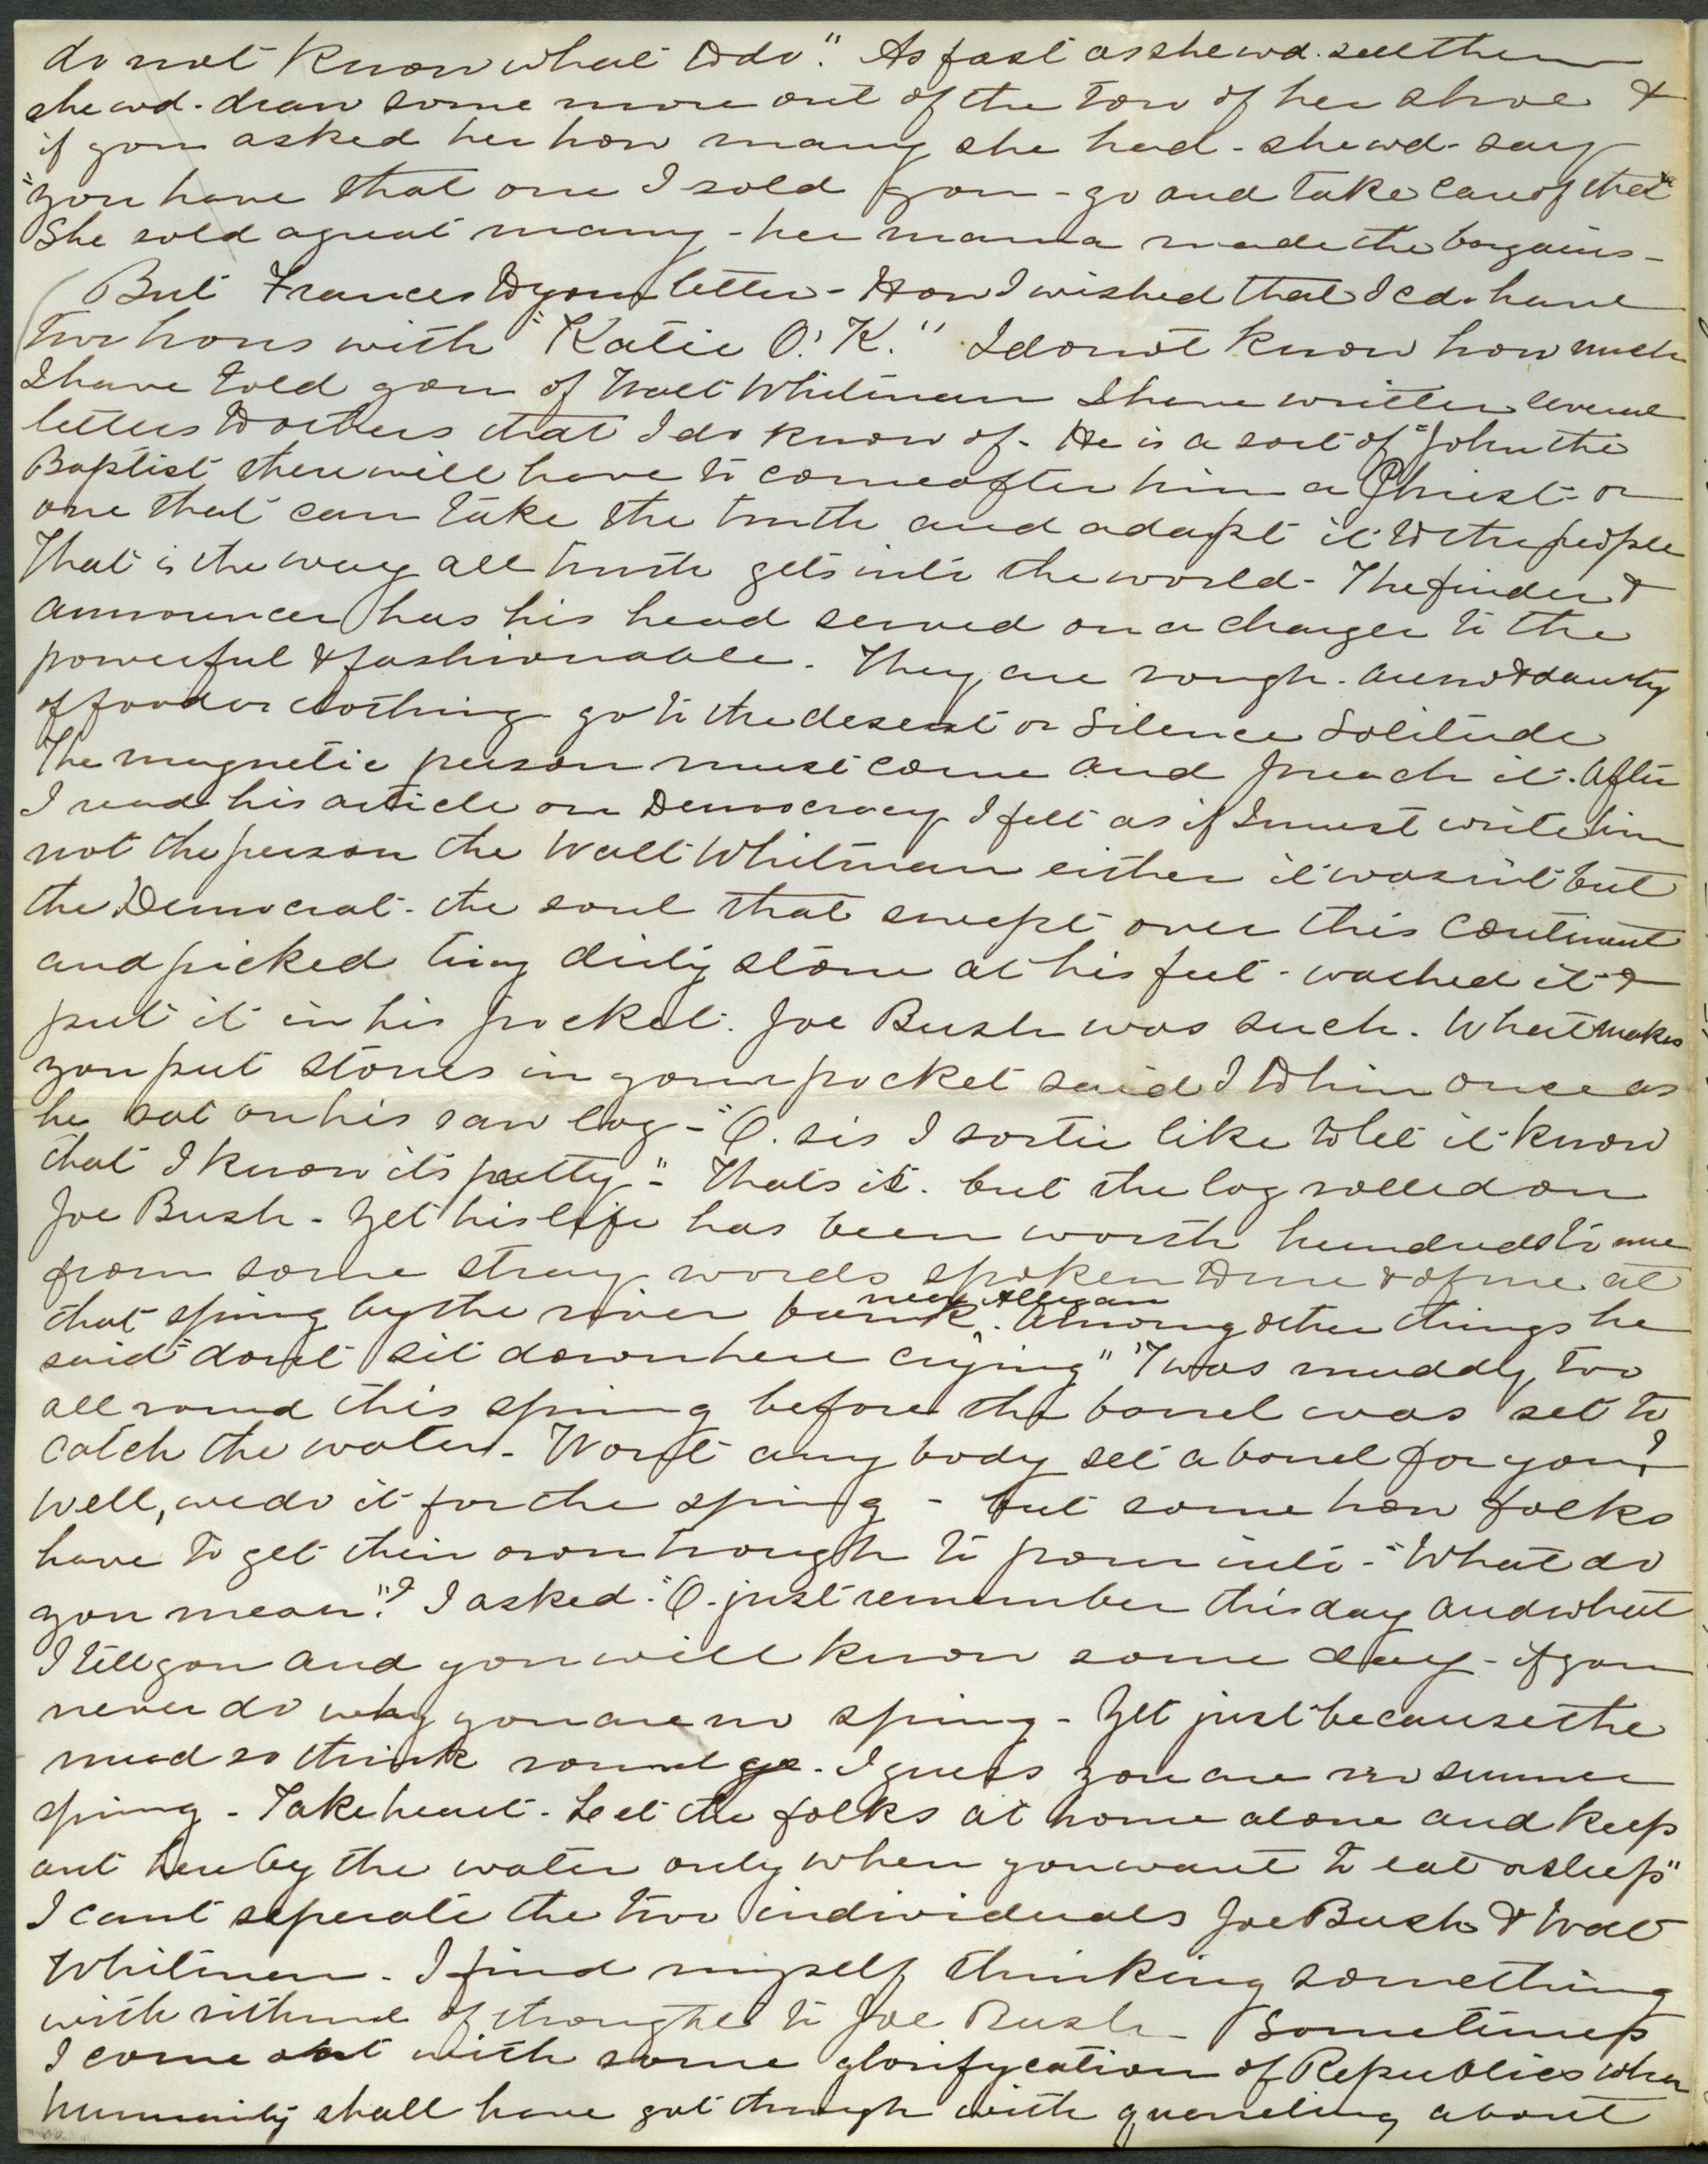 do not know what to do." As fast as she wd. sell them
she wd. draw some more out of the tow of her shoe &
if you asked her how many she had - she wd - say
"you have that one I sold you - go and take care of that"
She sold a great many - her mama made the bargains -
But Frances to your letter - How I wished that I cd. have
two hours with "Katie O.' K." I do not know how much
I have told you of Walt Whitman I have written several
letters to others that I do know of - He is a sort of "John the
Baptist there will have to come after him a Christ - or
one that can take the truth and adapt it to the people
That is the way all truth gets into the world - The finder &
announcer has his head served on a charger to the
powerful & fashionable. They are rough - are not dainty
of food or clothing go to the desert or Silence Solitude
The magnetic person must come and preach it. After
I read his article on Democracy I felt as if I must write him
not the person the Walt Whitman either it wasn't but
the Democrat - the soul that swept over this continent
and picked tiny dirty stone at his feet - washed it &
put it in his pocket. Joe Bush was such. What makes
you put stones in your pocket said I to him once as
he sat on his saw log - "O. sis I sortie like to let it know
that I know its pretty" - Thats it. but the log rolled on
Joe Bush - Yet his life has been worth hundreds to me
from some stray words spoken to me & of me at
that spring by the river bank near Allegan. Among other things he
said "dont sit down here crying" "Twas muddy too
all round this spring before the barrel was set to
catch the water - Wont any body set a barrel for you?
Well, we do it for the spring - but some how folks
have to get their own trough to pour into - "What do
you mean"? I asked. "O. just remember this day and what
I tell you and you will know some day - if you
never do why you are no spring - Yet just because the
mud so thick round ye. I guess you are no summer
spring - Take heart - Let the folks at home alone and keep
out here by the water only when you want to eat or sleep"
I cant seperate the two individuals Joe Bush & Walt
Whitman - I find myself thinking something
with rithmd of thought to Joe Bush - Sometimes
I come out with some glorifycation of Republics when
humanity shall have got through with quareling about